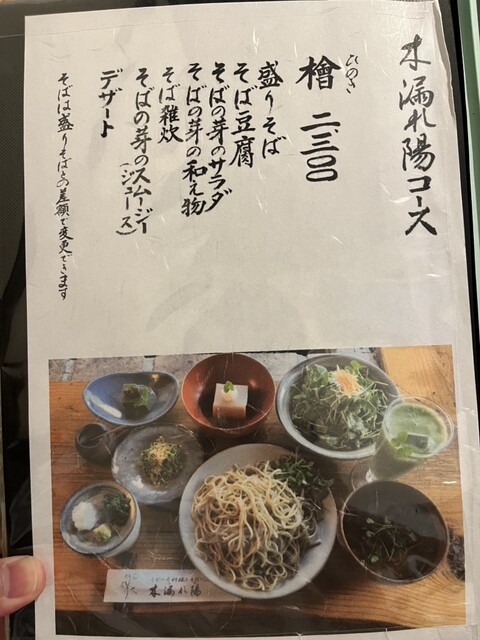 木漏れ陽コース
ひのき
檜 二、三〇〇
盛りそば
そば豆腐
そばの芽のサラダ
そばの芽の和え物
そば雑炊
そばの芽のスムージー
(ジュース)
デザート
そばは盛りそばとの差額で変更できます
木漏れ陽